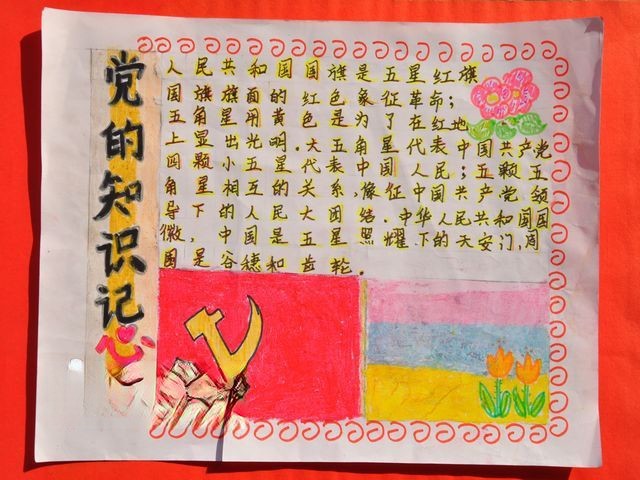 党的知识记心
人民共和国国旗是五星红旗
国旗旗面的红色象征革命;
五角星用黄色是为了在红地
上显出光明.大五角星代表中国共产党
四颗小五星代表中国人民;五颗五
角星相互的关系,像征中国共产党领
导下的人民大团结.中华人民共和国国
徽,中国是五星照耀下的天安门,周
围是谷穗和齿轮.